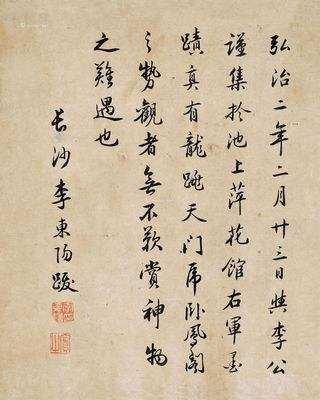 弘治二年二月廿三日與李公
謹集於池上萍花館右軍墨
蹟真有龍跳天門虎卧鳳閣
之勢觀者無不歎賞神物
之難遇也
長沙李東陽跋